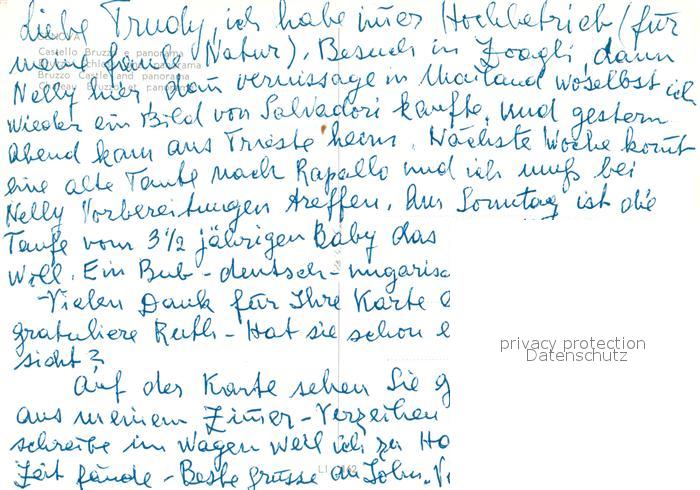 Liebe Trudy, ich habe immer Hochbetrieb (für
meine faule Natur). Besuch in Zoagli, dann
Nelly hier, dann vernissage in Mailand woselbst ich
wieder ein Bild von Salvadori kaufte. Und gestern
Abend kam aus Trieste heim. Nächste Woche kommt
eine alte Tante nach Rapallo und ich muß bei
Nelly Vorbereitungen treffen. Am Sonntag ist die
Taufe vom 3½ jährigen Baby das
Will. Ein Bub - deutsch - ungarisc
- Vielen Dank für Ihre Karte
gratuliere Ruth - Hat sie schon
sicht?
Auf der Karte sehen Sie
aus meinem Zimmer - Verzeihen
schreibe im Wagen weil ich zu
Zeit fände - Beste grüsse an John.
Castello Bruzzo e panorama
Bruzzo Castle and panorama
privacy protection
Datenschutz